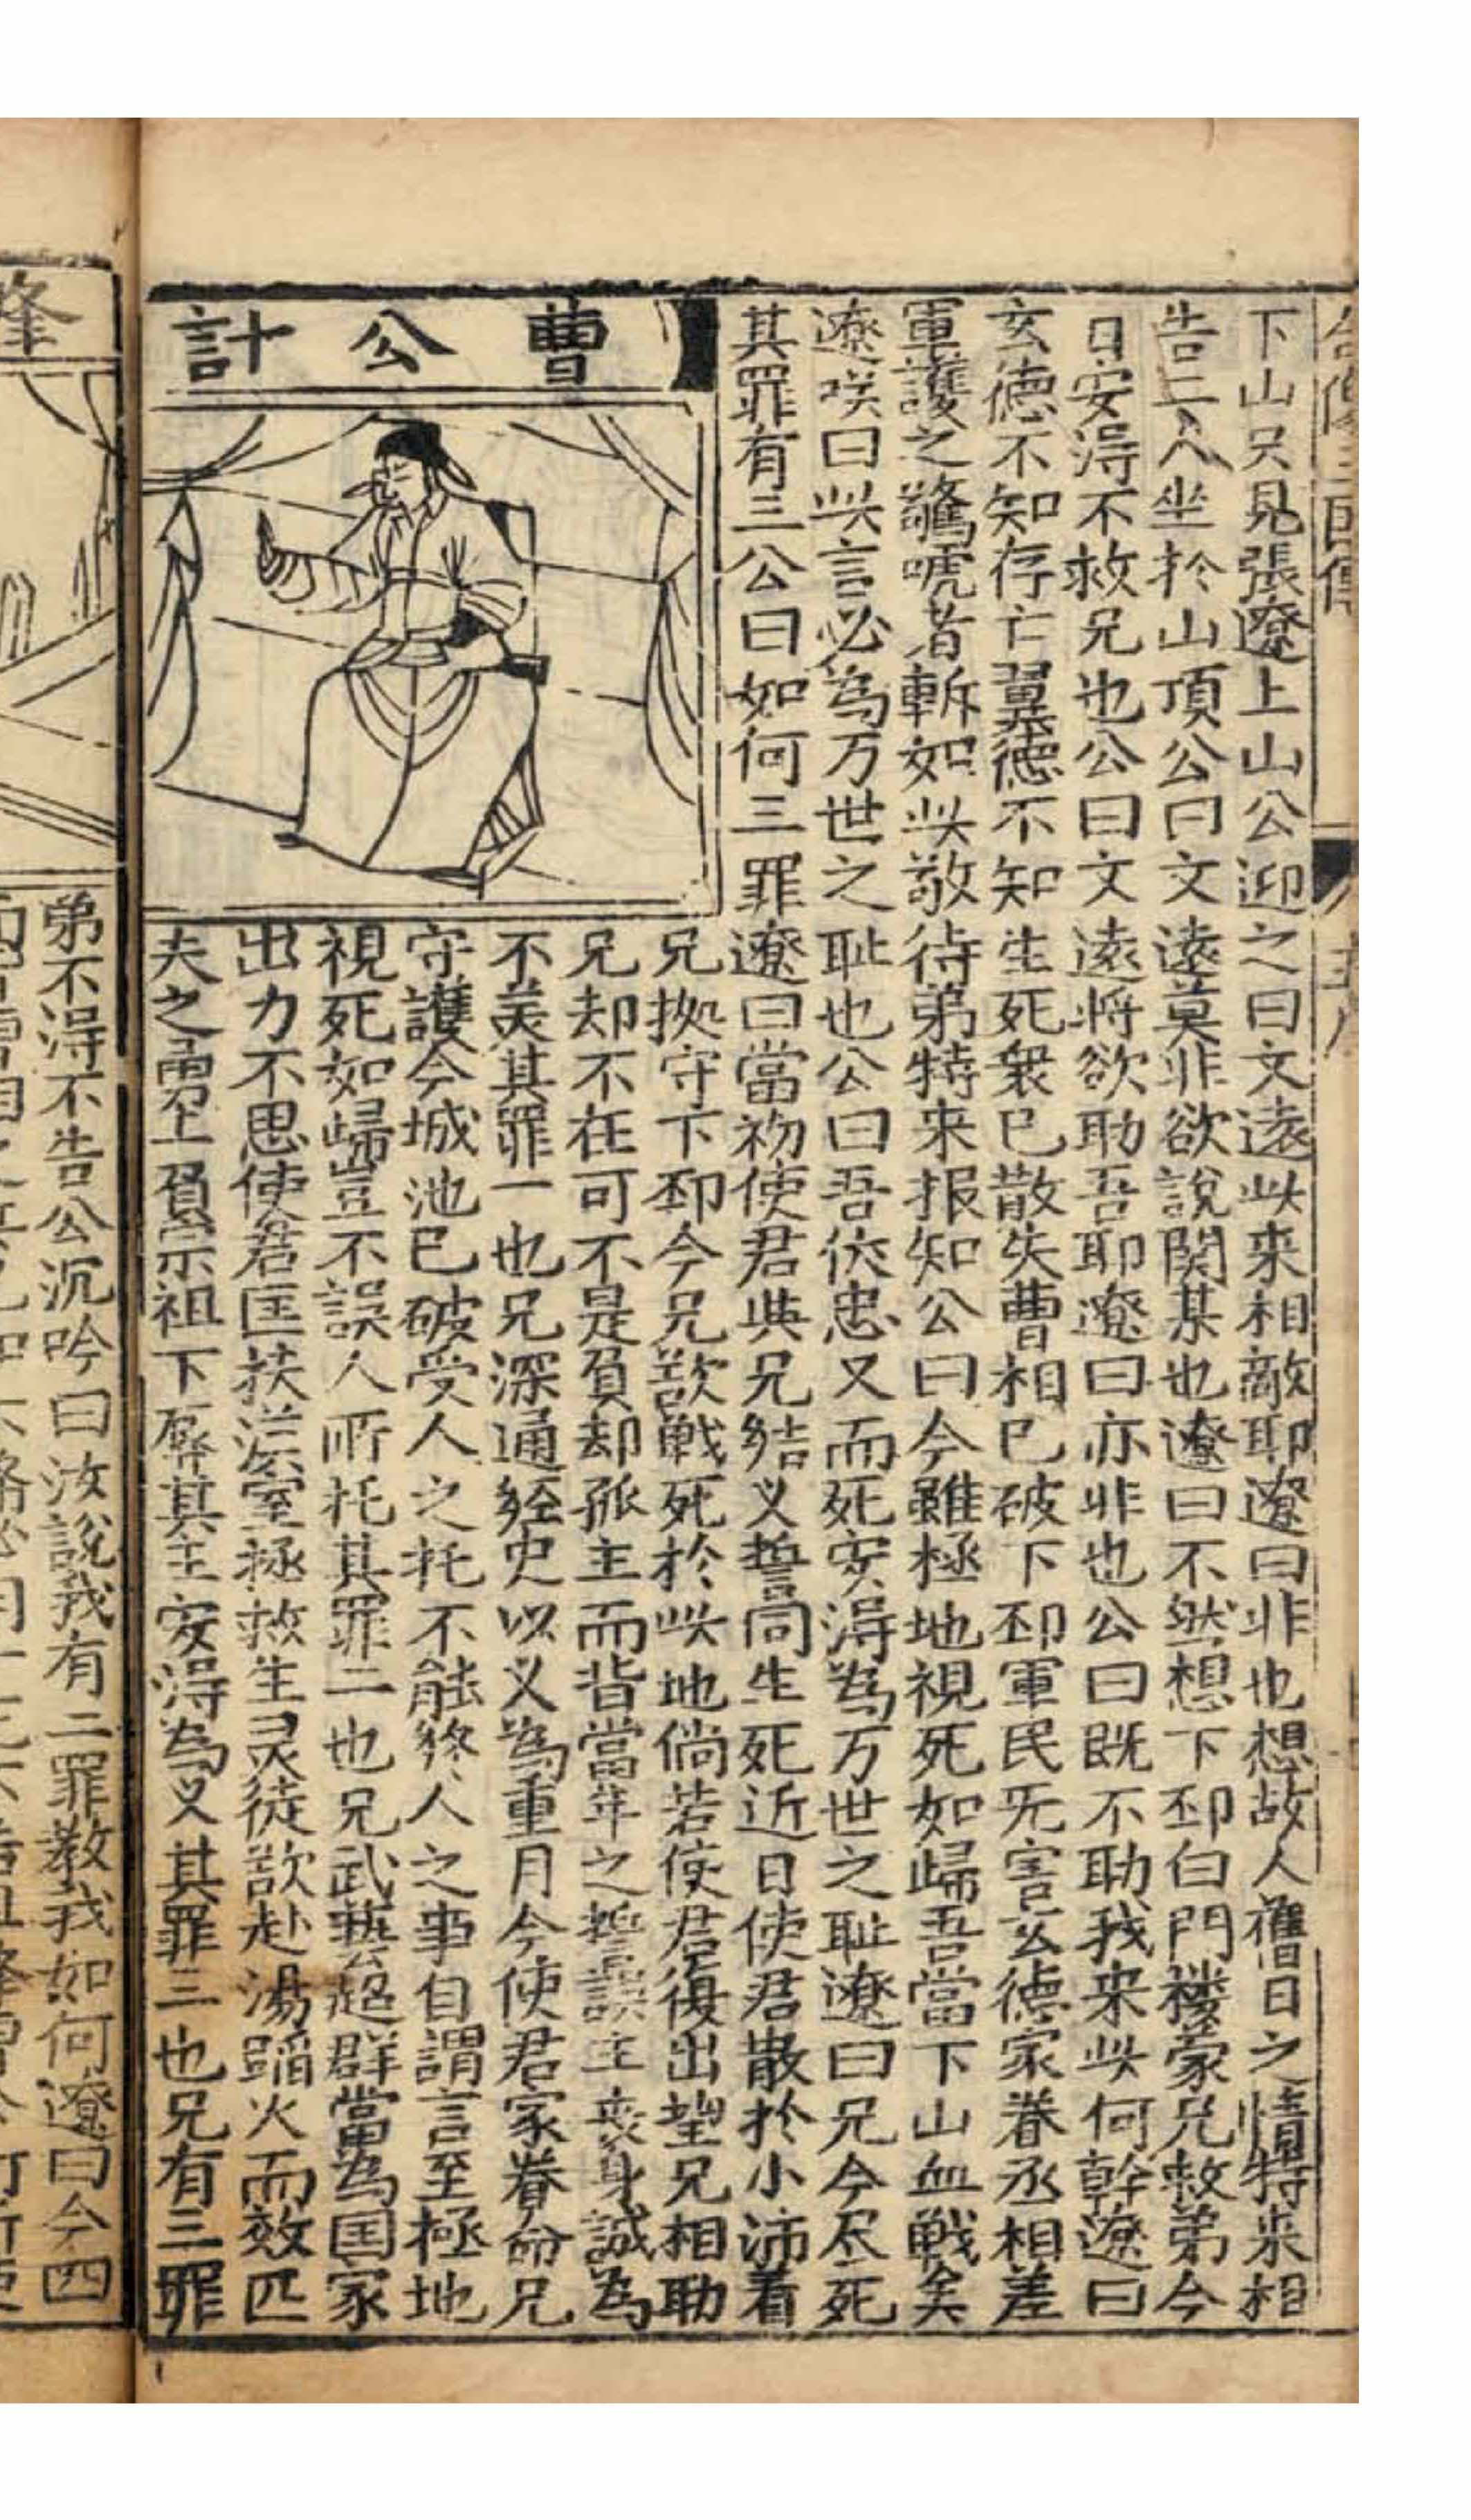 下山只見張遼上山公迎之曰文遠此来相敵耶遼曰非也想故人舊日之情特来相
告二人坐於山頂公曰文遠莫非欲說関某也遼曰不然想下邳白門楼蒙兄救弟今
日安淂不救兄也公曰文遠将欲助吾耶遼曰亦非也公曰既不助我来此何幹遼曰
玄德不知存亡翼德不知生死衆已散失曹相已破下邳軍民旡害玄德家眷丞相差
軍護之驚唬者斬如此敬待弟特来报知公曰今雖極地視死如歸吾當下山血戰矣
遼咲曰此言必為万世之耻也公曰吾依忠义而死安淂為万世之耻遼曰兄今尽死
其罪有三公曰如何三罪遼曰當初使君與兄結义誓同生死近日使君散於小沛着
兄拠守下邳今兄欲戰死於此地倘若使君復出望兄相助
兄却不在可不是負却孤主而背當年之誓誤主丧身誠為
不美其罪一也兄深通經史以义為重月今使君家眷命兄
守護今城池已破受人之托不能終人之事自謂言至極地
視死如歸豈不誤人所托其罪二也兄武藝超群當為国家
出力不思使君匡扶漢室拯救生灵徒欲赴湯蹈火而效匹
夫之勇上負宗祖下辱其主安淂為义其罪三也兄有三罪
曹公計
弟不淂不告公沉吟曰汝說我有三罪教我如何遼曰今四